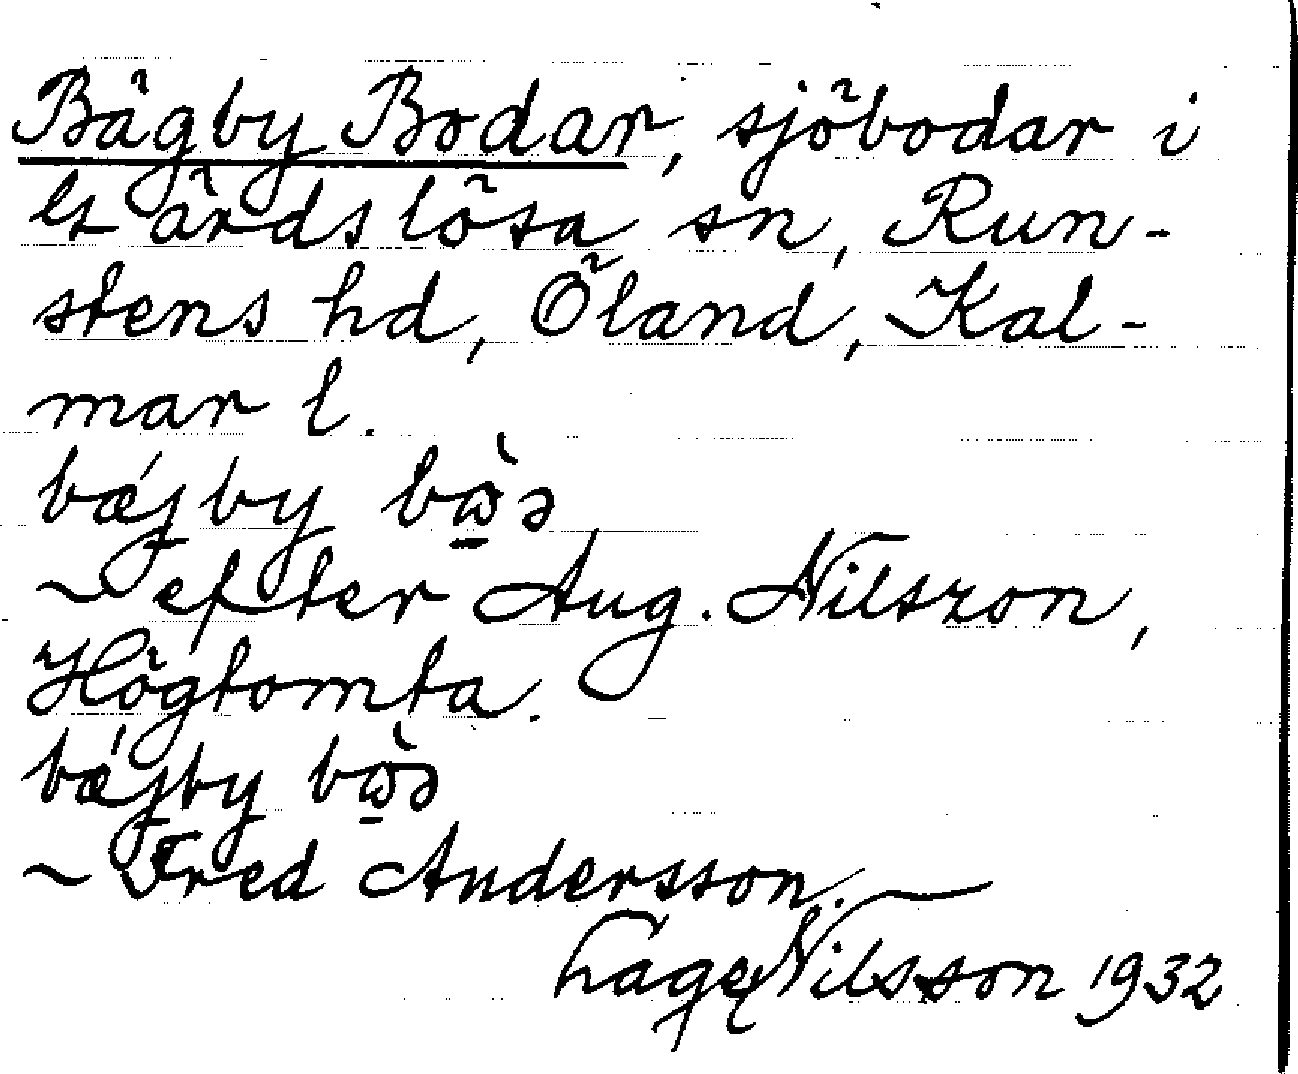 Bägby Bodar, sjöbodar i
Gärdslösa sn, Run-
stens hd, Öland, Kal-
mar l.
bǽjby bὼ̱ə
~ efter Aug. Nilsson,
Högtomta.
bǽjby bὼ̱ə
~ Fred Andersson.
Nilsson 1932